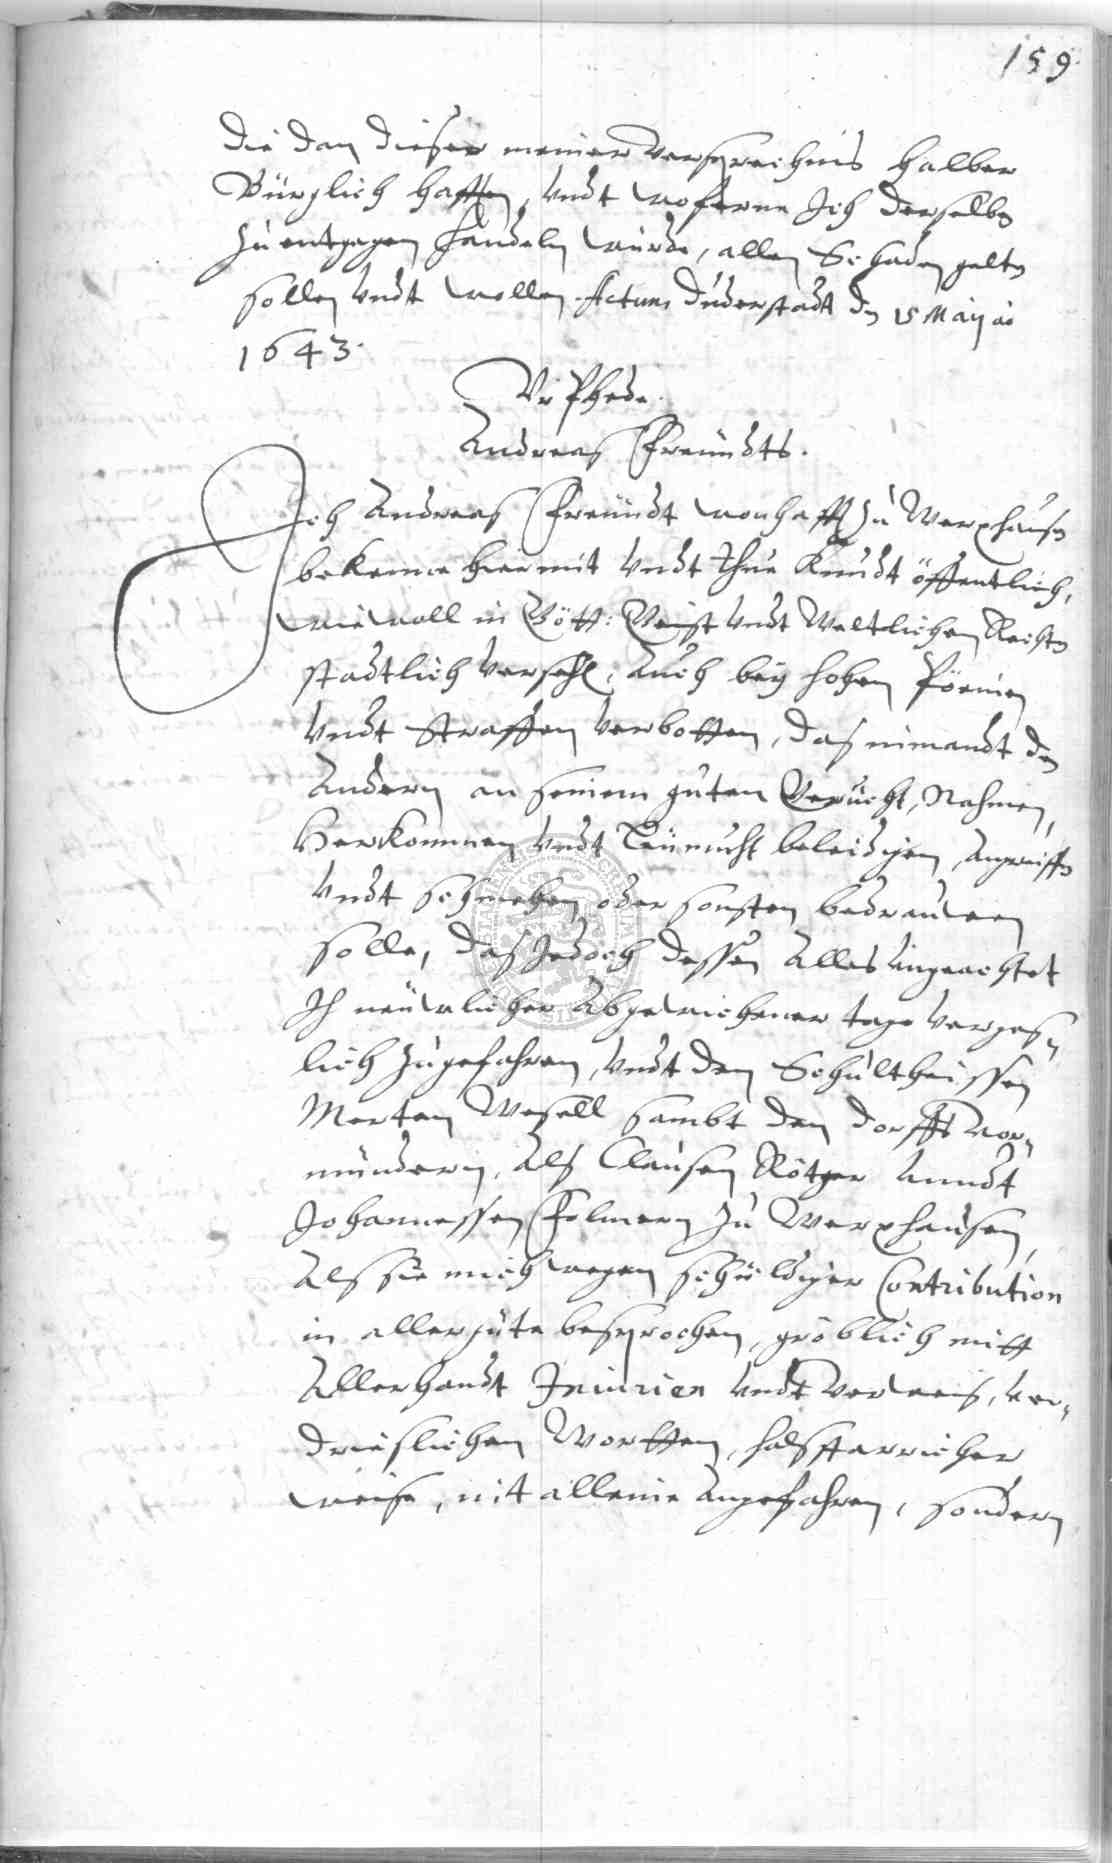 159
die dan dieser meiner versprechnis halber
Bürglich hafften, undt wofern Ich derselben
zu entgegen handeln würde, allen Schaden gelten
sollen undt wollen. Actum Duderstadt den 15 Maÿ ao
1643.
Vrphede.
Andreas Freündts.
Ich Andreas Freündt wonhafft zu Werxhausen
bekenne hiermit undt thue kundt öffentlich,
wiewoll in Gött: Geist undt Weltlichen Rechten
stadtlich versehen, Auch beÿ hohen Pöenen
undt Straffen verbotten, das nimandt den
Andern an seinem guten Gerücht, Nahmen,
Herkommen undt Leümuht beleidigen, Angreiffen
undt schmehen oder sonsten bedrauwen
solle, das Jedoch dessen Alles ungeachtet
Ich neüwlicher Abgewichener tage vergess„
lich zugefahren, undt den Schultheissen
Merten Wesell sambt den dorffts vor„
mündern, Als Clausen Rötger unndt
Johannessen Folmern zu Werxhausen,
Als sie mich wegen schüldiger Contribution
in aller güte besprochen, gröblich mitt
Allerhandt Iniurien undt verweis, ver„
drieslichen Wortten, halsstarricher
weise, nit alleine Angefahren, sondern